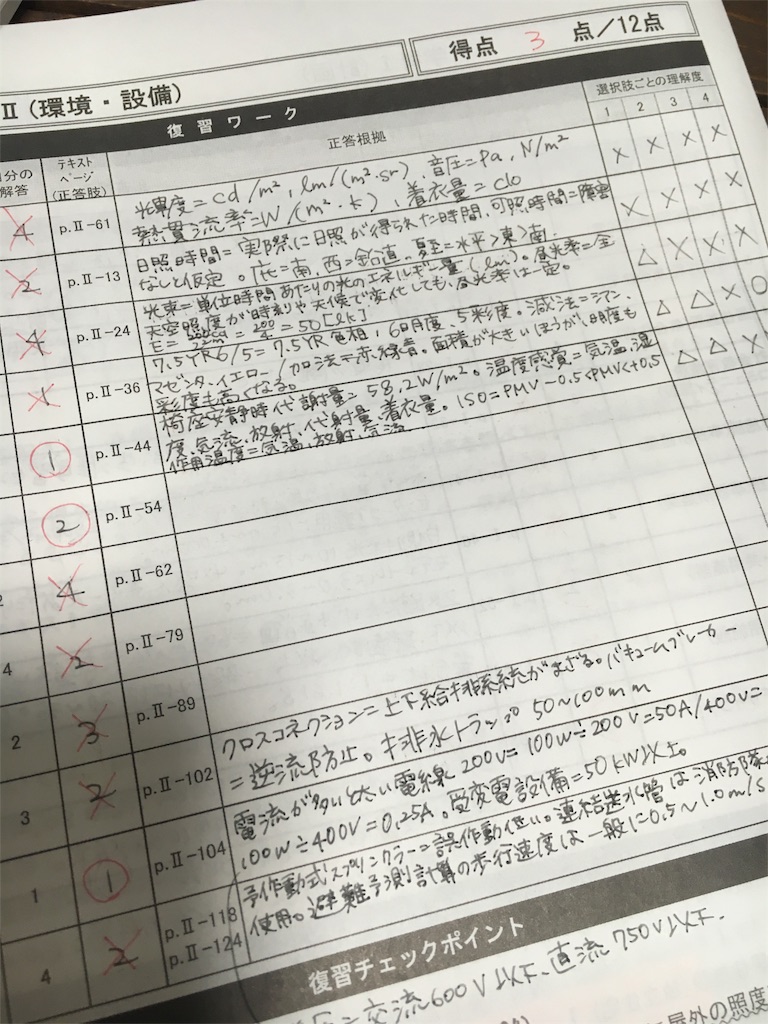 得点 3 点/12点
Ⅱ(環境・設備)
復習ワーク
分の解答
テキストページ(正答肢)
正答根拠
選択肢ごとの理解度
1 2 3 4
4 p.Ⅱ-61
光輝度=cd/m², lm/(m²・sr), 音圧=Pa, N/m²
熱貫流率=W/(m²・k), 着衣量=clo
× × × ×
2 p.Ⅱ-13
日照時間=実際に日照が得られた時間, 可照時間=障害
なしと仮定。北=南, 西=鉛直, 夏至=水平>東>南.
× × × ×
4 p.Ⅱ-24
光束=単位時間あたりの光のエネルギー量(lm)。昼光率=全
天空照度が時刻や天候で変化しても, 昼光率は一定。
=50[lx]
△ × × ×
1 p.Ⅱ-36
7.5YR6/5=7.5YR色相, 6明度, 5彩度。減法=シアン,
マゼンタ, イエロー/加法=赤, 緑, 青。面積が大きいほうが, 明度も
彩度も高くなる。
△ △ × ○
1 p.Ⅱ-44
椅座安静時代謝量=58.2W/m²。温度感覚=気温, 湿
度, 気流, 放射, 代謝量, 着衣量。ISO=PMV-0.5<PMV<+0.5
作用温度=気温, 放射, 気流
△ △ ×
2 p.Ⅱ-54
4 p.Ⅱ-62
4 2 p.Ⅱ-79
2 3 p.Ⅱ-89
3 2 p.Ⅱ-102
クロスコネクション=上下給排系統がまざる。バキュームブレーカー
=逆流防止。排水トラップ 50~100mm
1 1 p.Ⅱ-104
電流が多い太い電線 200V=100W÷200V=50A/400V=
100W÷400V=0.25A。受変電設備=50kW以上。
4 2 p.Ⅱ-118
p.Ⅱ-124
予作動式スプリンクラー=誤作動低い。連結送水管は消防隊
使用。避難予測計算の歩行速度は一般に0.5~1.0m/s
復習チェックポイント
=交流600V以下、直流750V以下.
屋外の照度